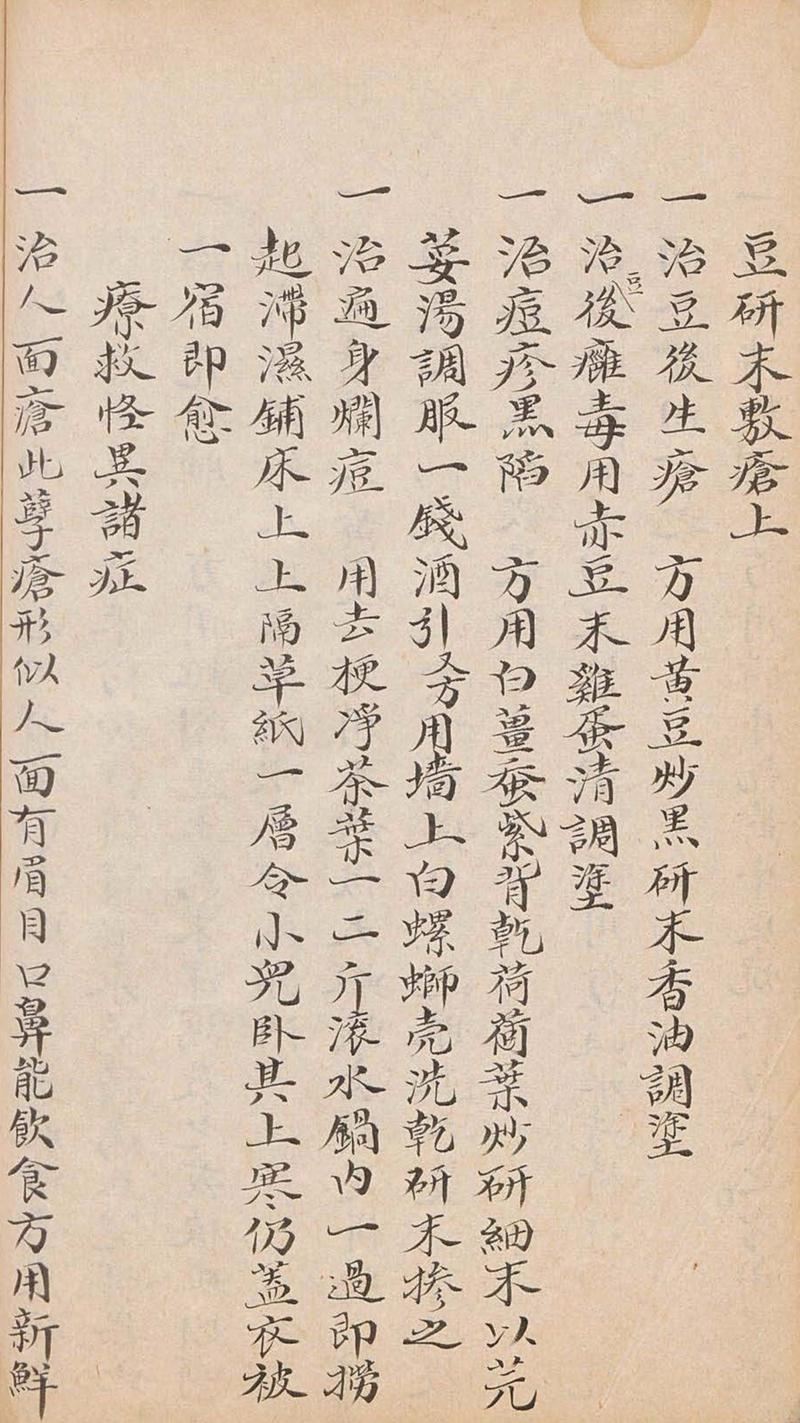 豆研末敷瘡上
一治豆後生瘡　方用黄豆炒黒研末香油調塗
一治豆後癰毒用赤豆末雞蛋清調塗
一治痘疹黒陷　方用白薑蚕紫背乾荷葉炒研細末以芫
荽湯調服一錢酒引又方用墻上白螺螄壳洗乾研末摻之
一治遍身爛痘　用去梗凈茶葉一二斤滚水鍋内一過即撈
起滯濕鋪床上上隔草紙一層令小兒卧其上寒仍蓋衣被
一宿即愈
療救怪異諸症
一治人面瘡此孽瘡形似人面有眉目口鼻能飲食方用新鮮